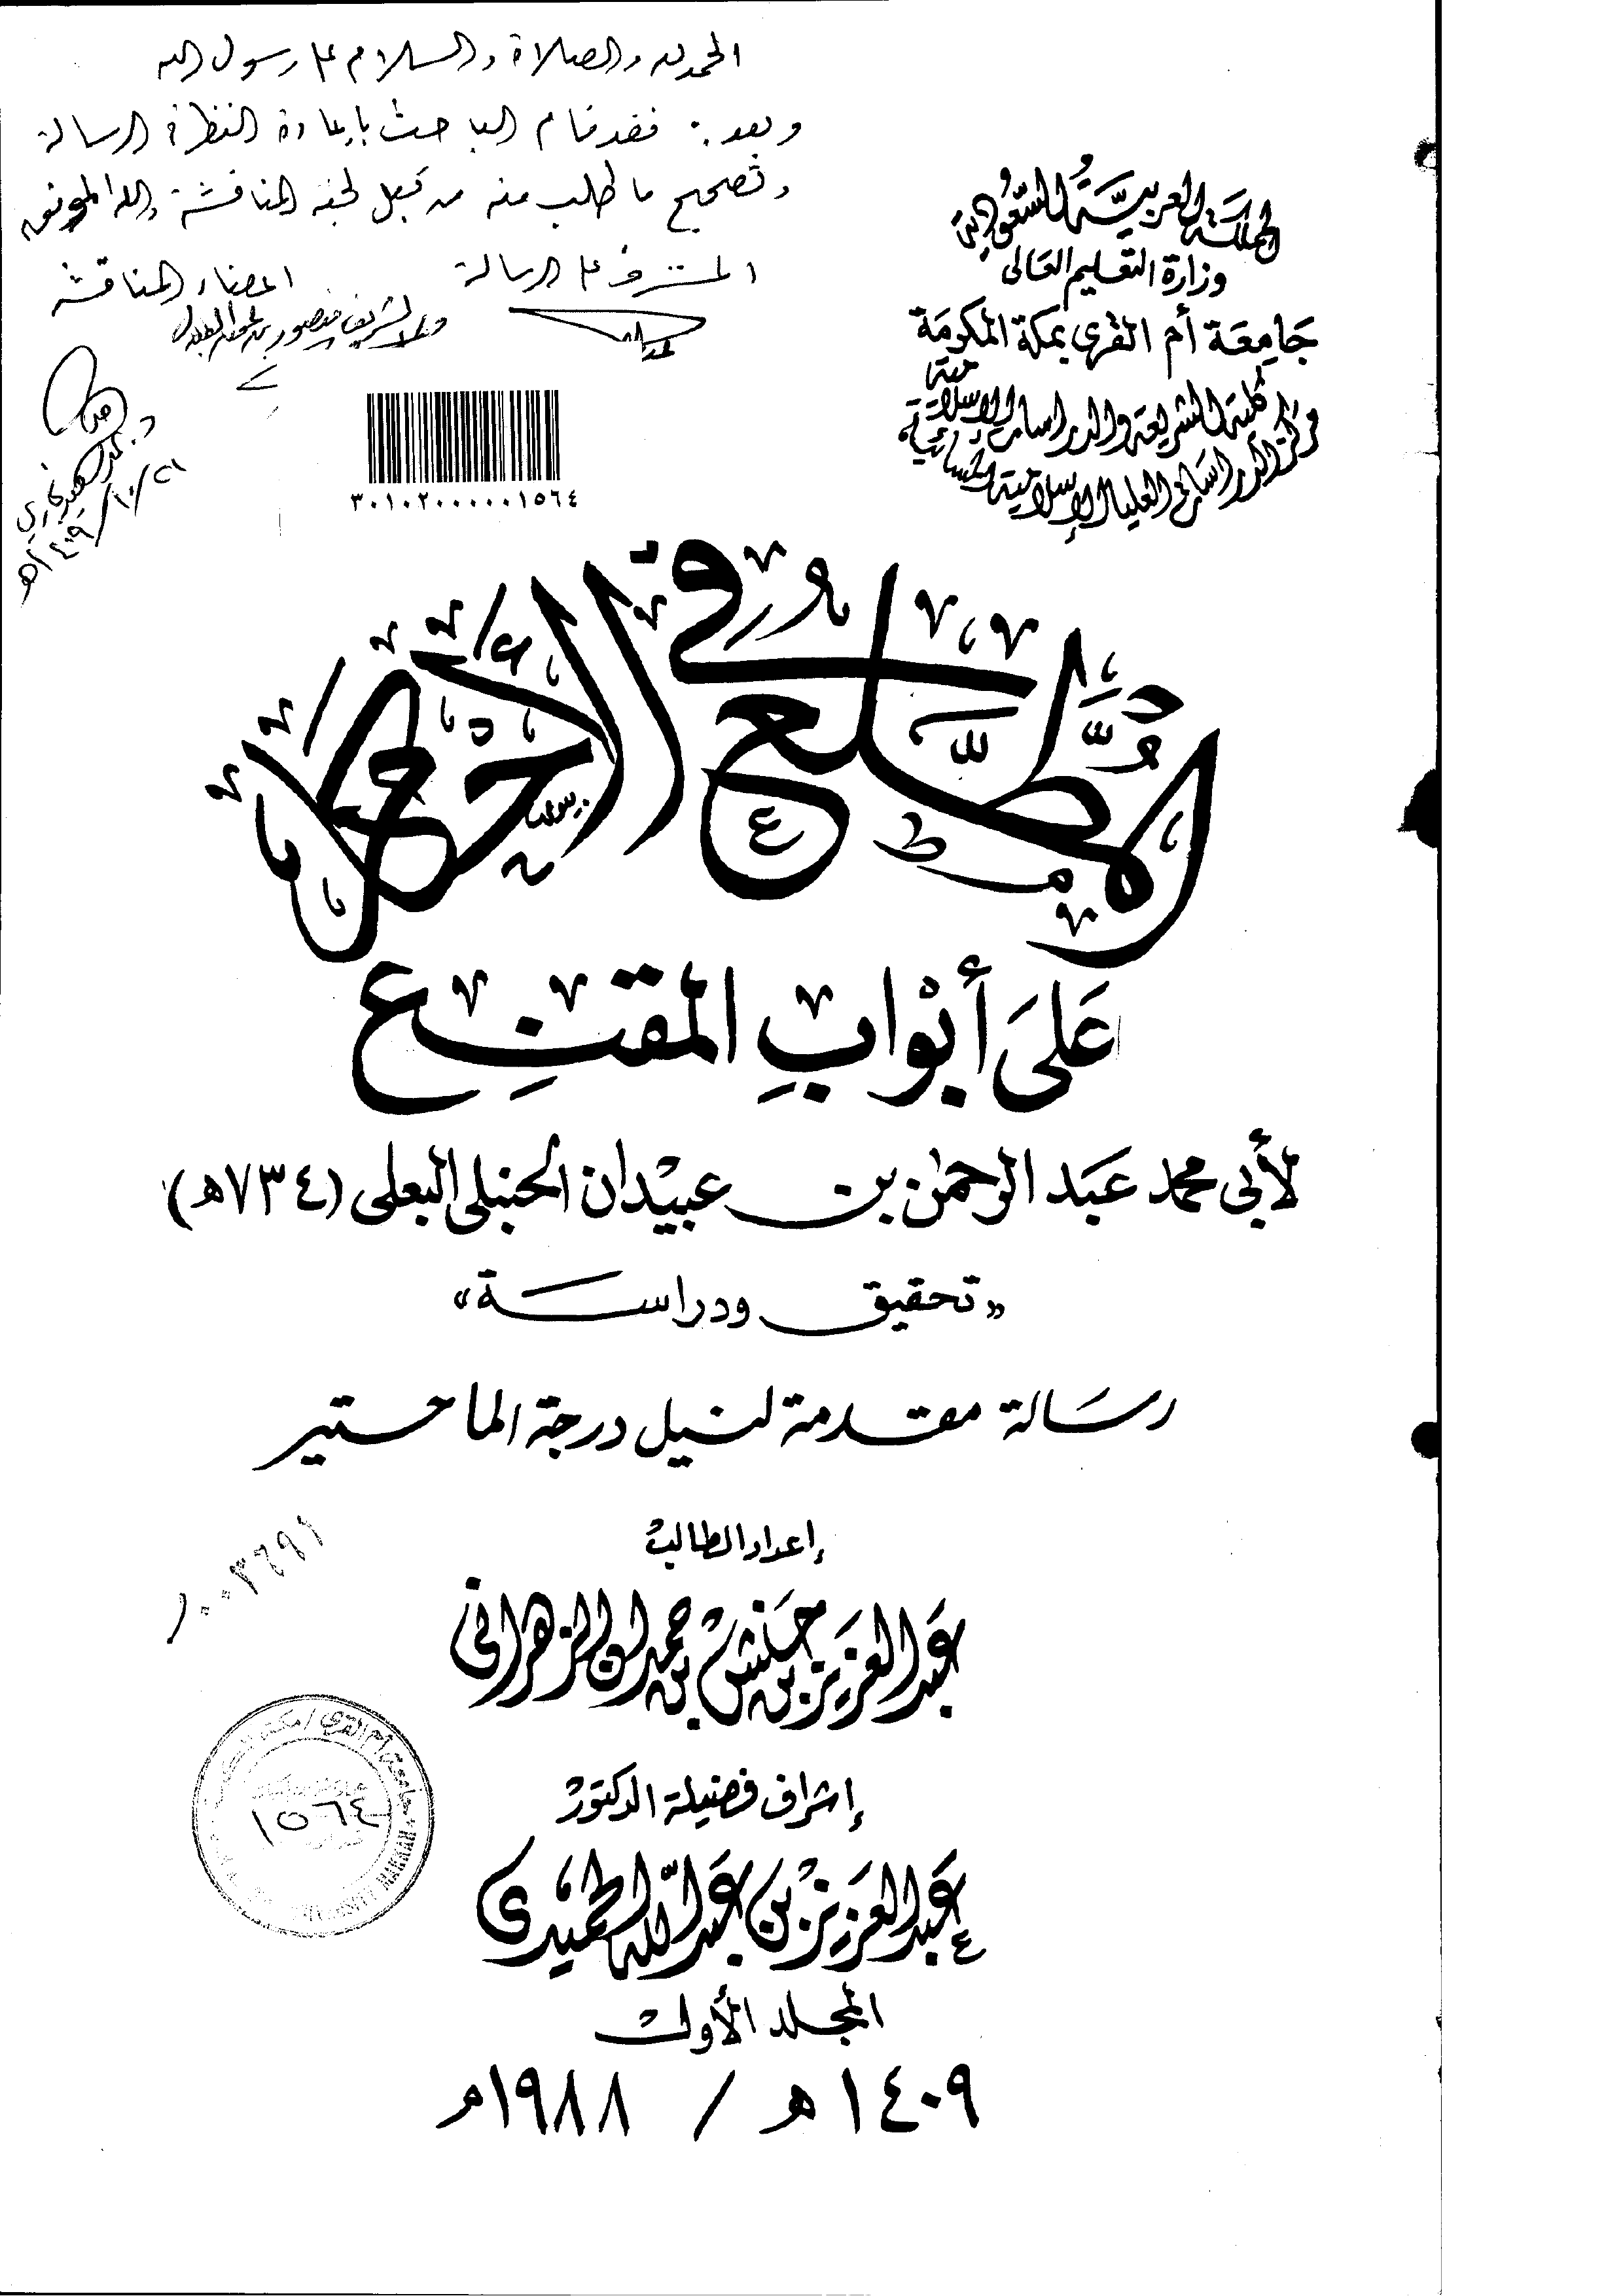 الحمد لله والصلاة والسلام على رسول الله
وبعد: فقد قام الباحث بإعادة النظر في الرسالة
وتصحيح ما طلب منه من قبل لجنة المناقشة والله الموفق
المشرف على الرسالة
أعضاء المناقشة
٣٠١٠٢٠٠٠٠٠١٥٦٤
المملكة العربية السعودية
وزارة التعليم العالى
جامعة أم القرى بمكة المكرمة
كلية الشريعة والدراسات الإسلامية
مركز الدراسات العليا الإسلامية المسائية
المطلع
على أبواب المقنع
لأبي محمد عبد الرحمن بن عبيدان الحنبلى البعلى (٧٣٤هـ)
«تحقيق ودراسة»
رسالة مقدمة لنيل درجة الماجستير
إعداد الطالب
عبد العزيز بن حنش بن حمدان الزهرانى
إشراف فضيلة الدكتور
عبد العزيز بن عبد الله الحميدى
المجلد الأول
١٤٠٩هـ / ١٩٨٨م
١٥٦٤